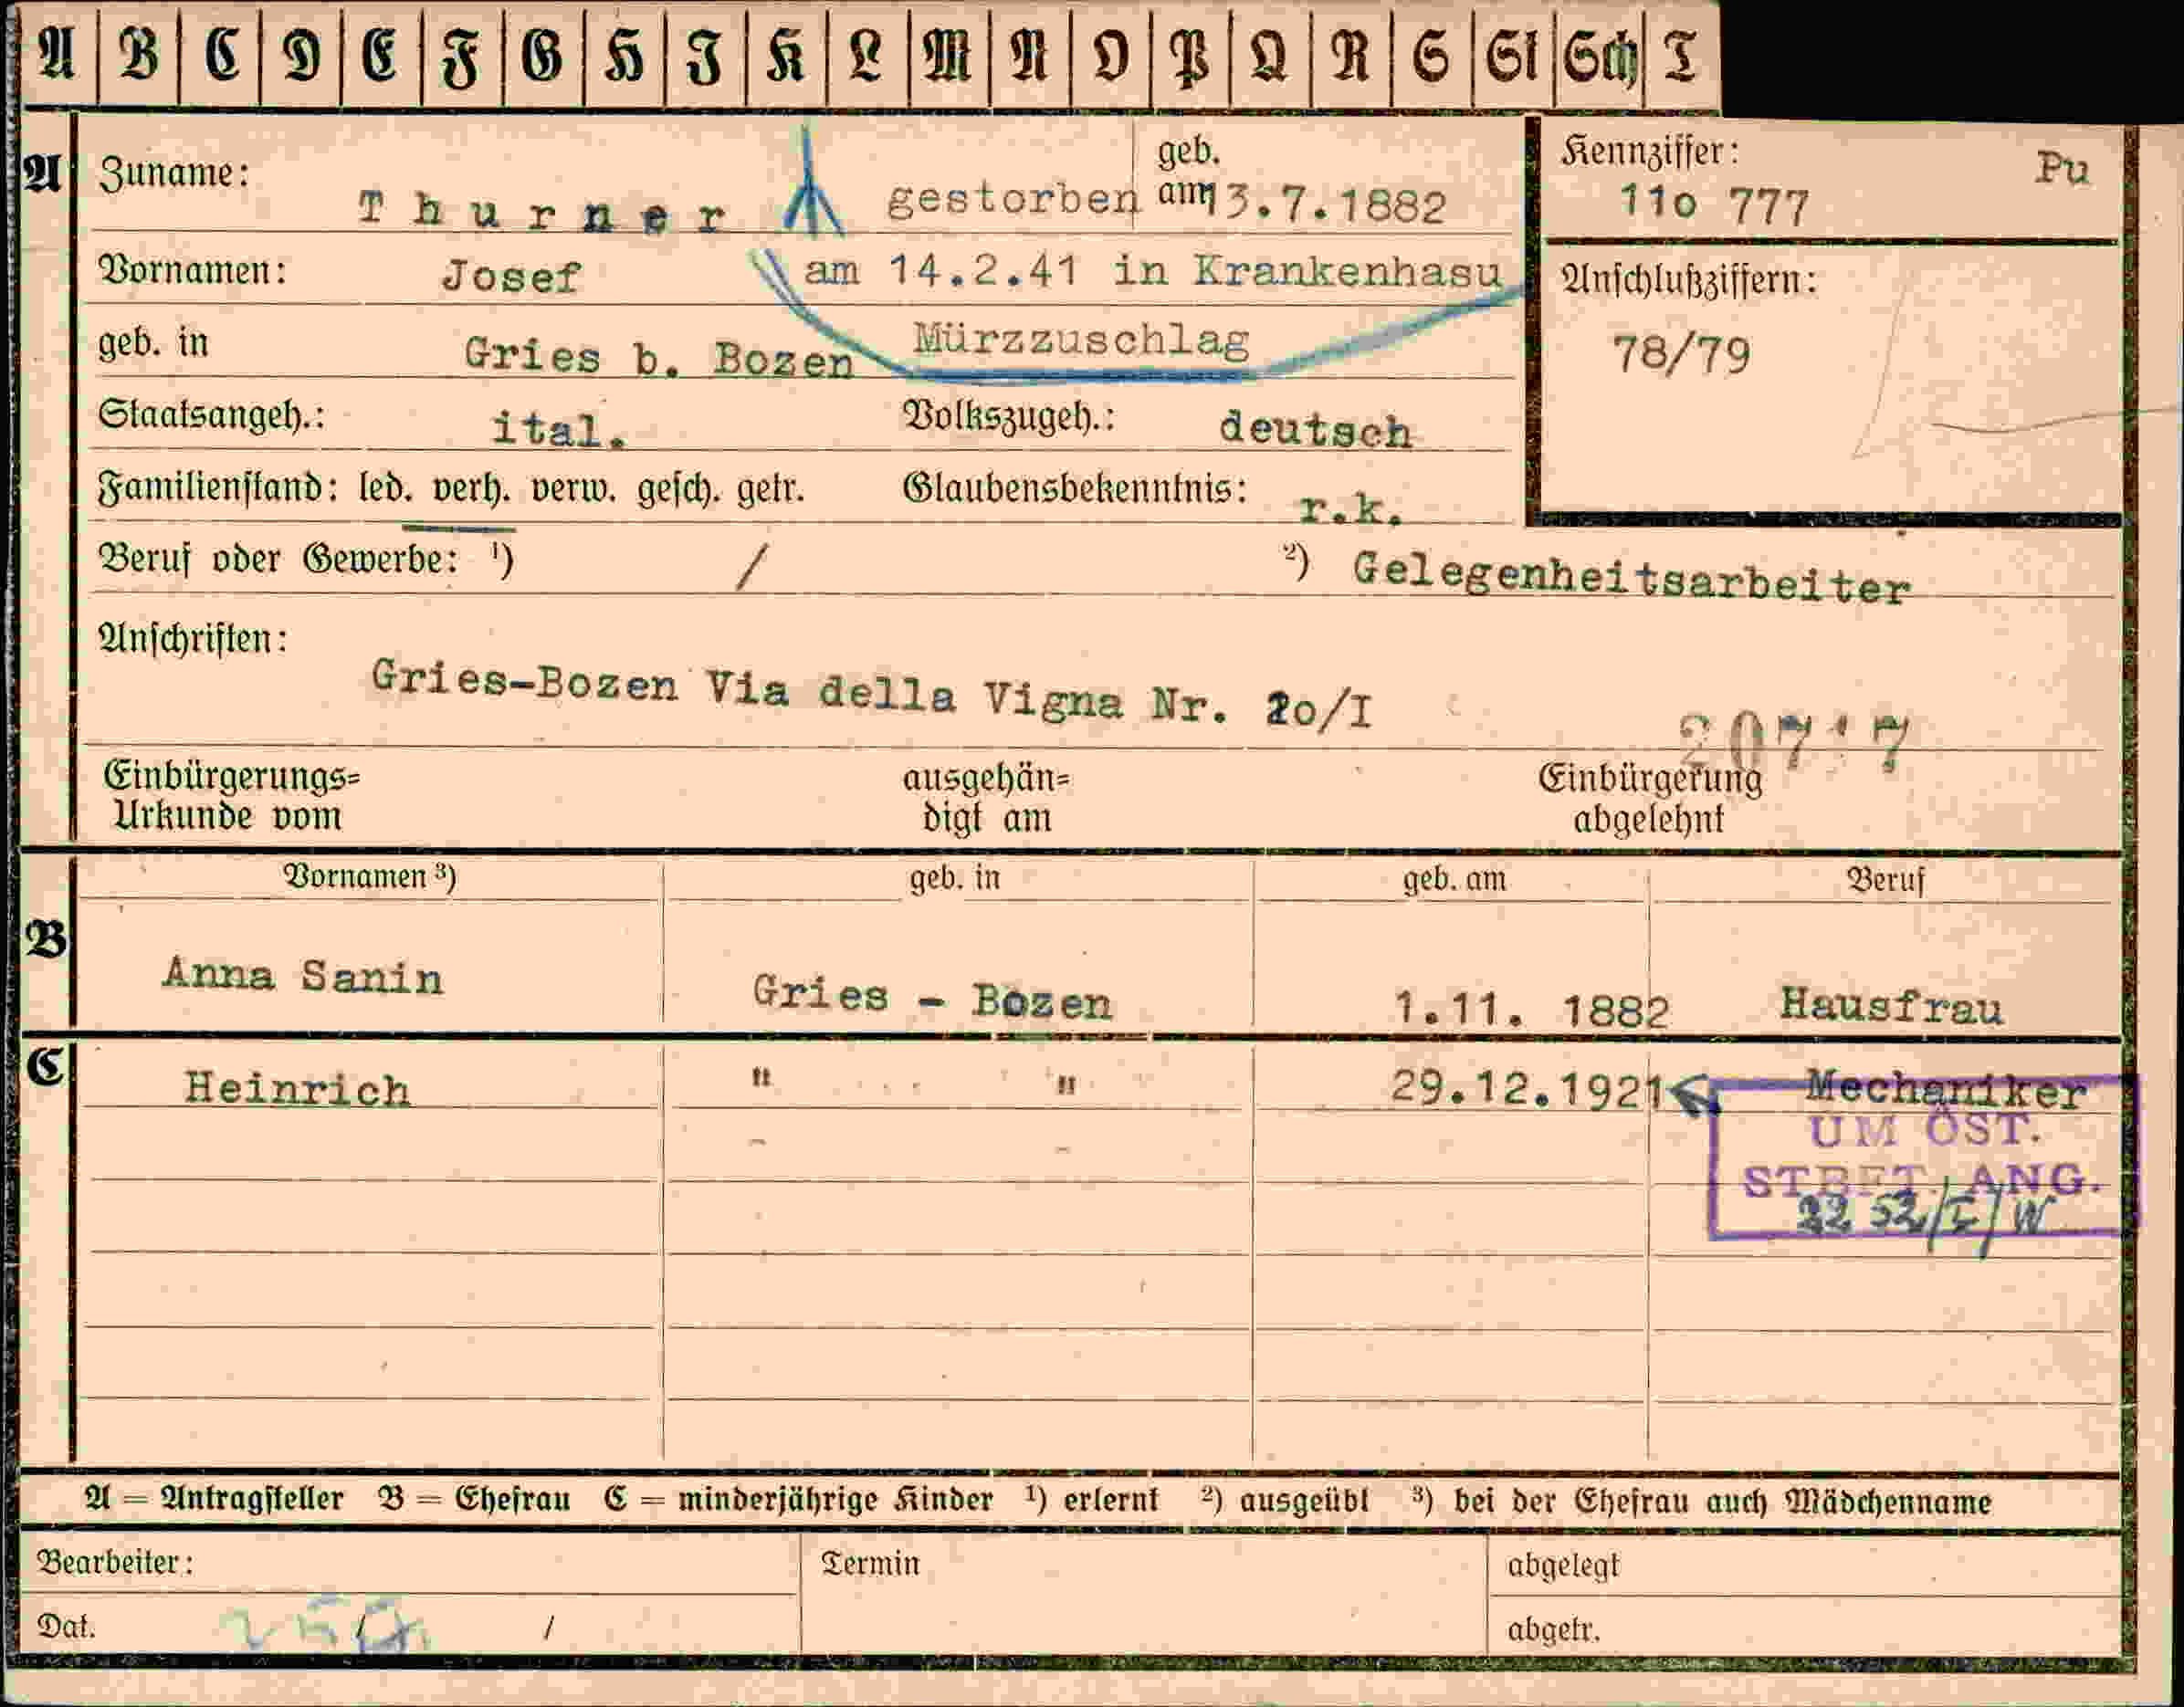 A B C D E F G H I K L M N O P Q R S St Sch T
A Zuname: Thurner gestorben geb. am 3.7.1882
Kennziffer: 11o 777 Pu
Vornamen: Josef am 14.2.41 in Krankenhasu
Anschlußziffern:
geb. in Gries b. Bozen Mürzzuschlag
78/79
Staatsangeh.: ital. Volkszugeh.: deutsch
Familienstand: led. verh. verw. gesch. getr. Glaubensbekenntnis: r.k.
Beruf oder Gewerbe: ¹) / ²) Gelegenheitsarbeiter
Anschriften:
Gries-Bozen Via della Vigna Nr. 2o/I
Einbürgerungs= ausgehän= Einbürgerung
Urkunde vom digt am abgelehnt
Vornamen ³) geb. in geb. am Beruf
B Anna Sanin Gries - Bozen 1.11. 1882 Hausfrau
C Heinrich " " 29.12.1921 Mechaniker
UM ÖST.
STBFT. ANG.
A = Antragsteller B = Ehefrau C = minderjährige Kinder ¹) erlernt ²) ausgeübt ³) bei der Ehefrau auch Mädchenname
Bearbeiter: Termin abgelegt
Dat. / / abgetr.